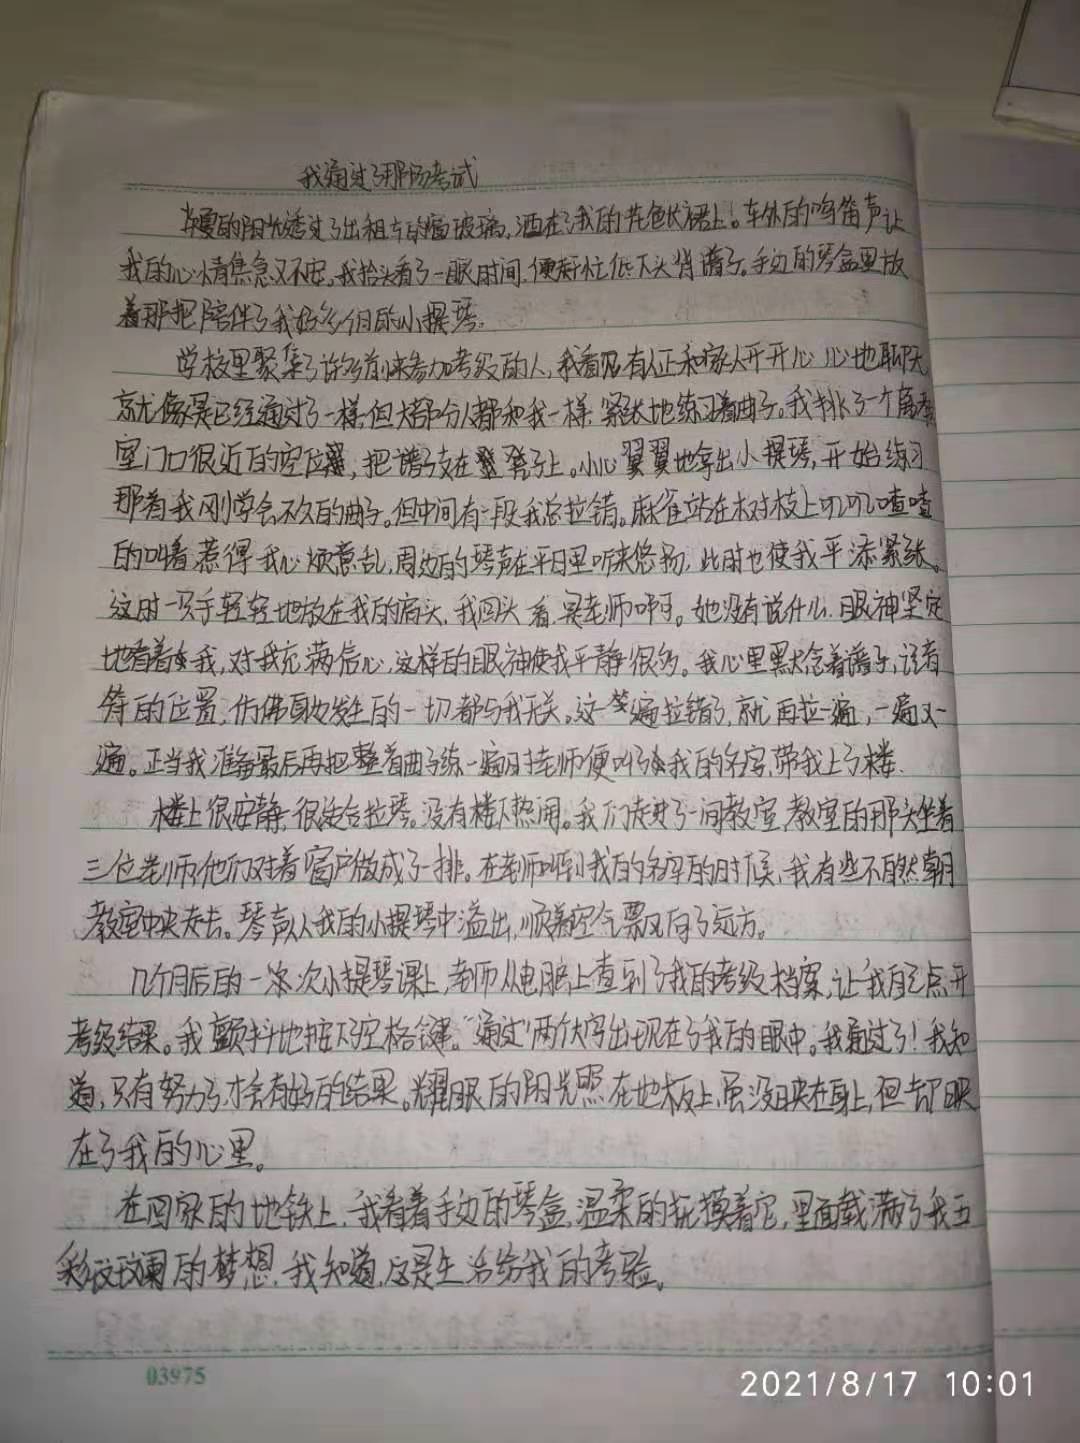 我通过了那场考试
夏的阳光透过了出租车的窗玻璃,洒在了我的花色长裙上。车外的鸣笛声让
我的心情焦急又不安。我抬头看了一眼时间,便赶忙低下头背谱子。手边的琴盒里放
着那把陪伴了我好多个月的小提琴。
学校里聚集了许多前来参加考级的人,我看见有人正和家人开开心心地聊天
就像是已经通过了一样,但大部分人都和我一样,紧张地练习着曲子。我挑了一个离考
室门口很近的空位,把谱子支在凳子上。小心翼翼地拿出小提琴,开始练习
那首我刚学会不久的曲子。但中间有一段我总拉错。麻雀站在树枝上叽叽喳喳
的叫着,惹得我心烦意乱,周边的琴声在平日里听来悠扬,此时也使我平添紧张。
这时一只手轻轻地放在我的肩头,我回头看,是老师呀。她没有说什么,眼神坚定
地看着我,对我充满信心,这样的眼神使我平静很多。我心里默念着谱子,记着
符的位置,仿佛身边发生的一切都与我无关。这一遍拉错了,就再拉一遍,一遍又一
遍。正当我准备最后再把整首曲子练一遍时老师便叫了我的名字,带我上了楼.
楼上很安静,很适合拉琴。没有楼下热闹。我们走进了一间教室,教室的那头坐着
三位老师,他们对着窗户做成了一排。在老师叫到我的名字的时候,我有些不自然朝
教室中央走去。琴声从我的小提琴中溢出,顺着空气飘向了远方。
几个月后的一次小提琴课上,老师从电脑上查到了我的考级档案,让我自己点开
考级结果。我颤抖地按下空格键。“通过”两个大字出现在了我的眼中。我通过了!我知
道,只有努力了才会有好的结果。耀眼的阳光照在地板上,虽没映在身上,但却映
在了我的心里。
在回家的地铁上,我看着手边的琴盒,温柔的抚摸着它,里面载满了我五
彩斑斓的梦想,我知道,这是生活给我的考验。
03975
2021/8/17 10:01